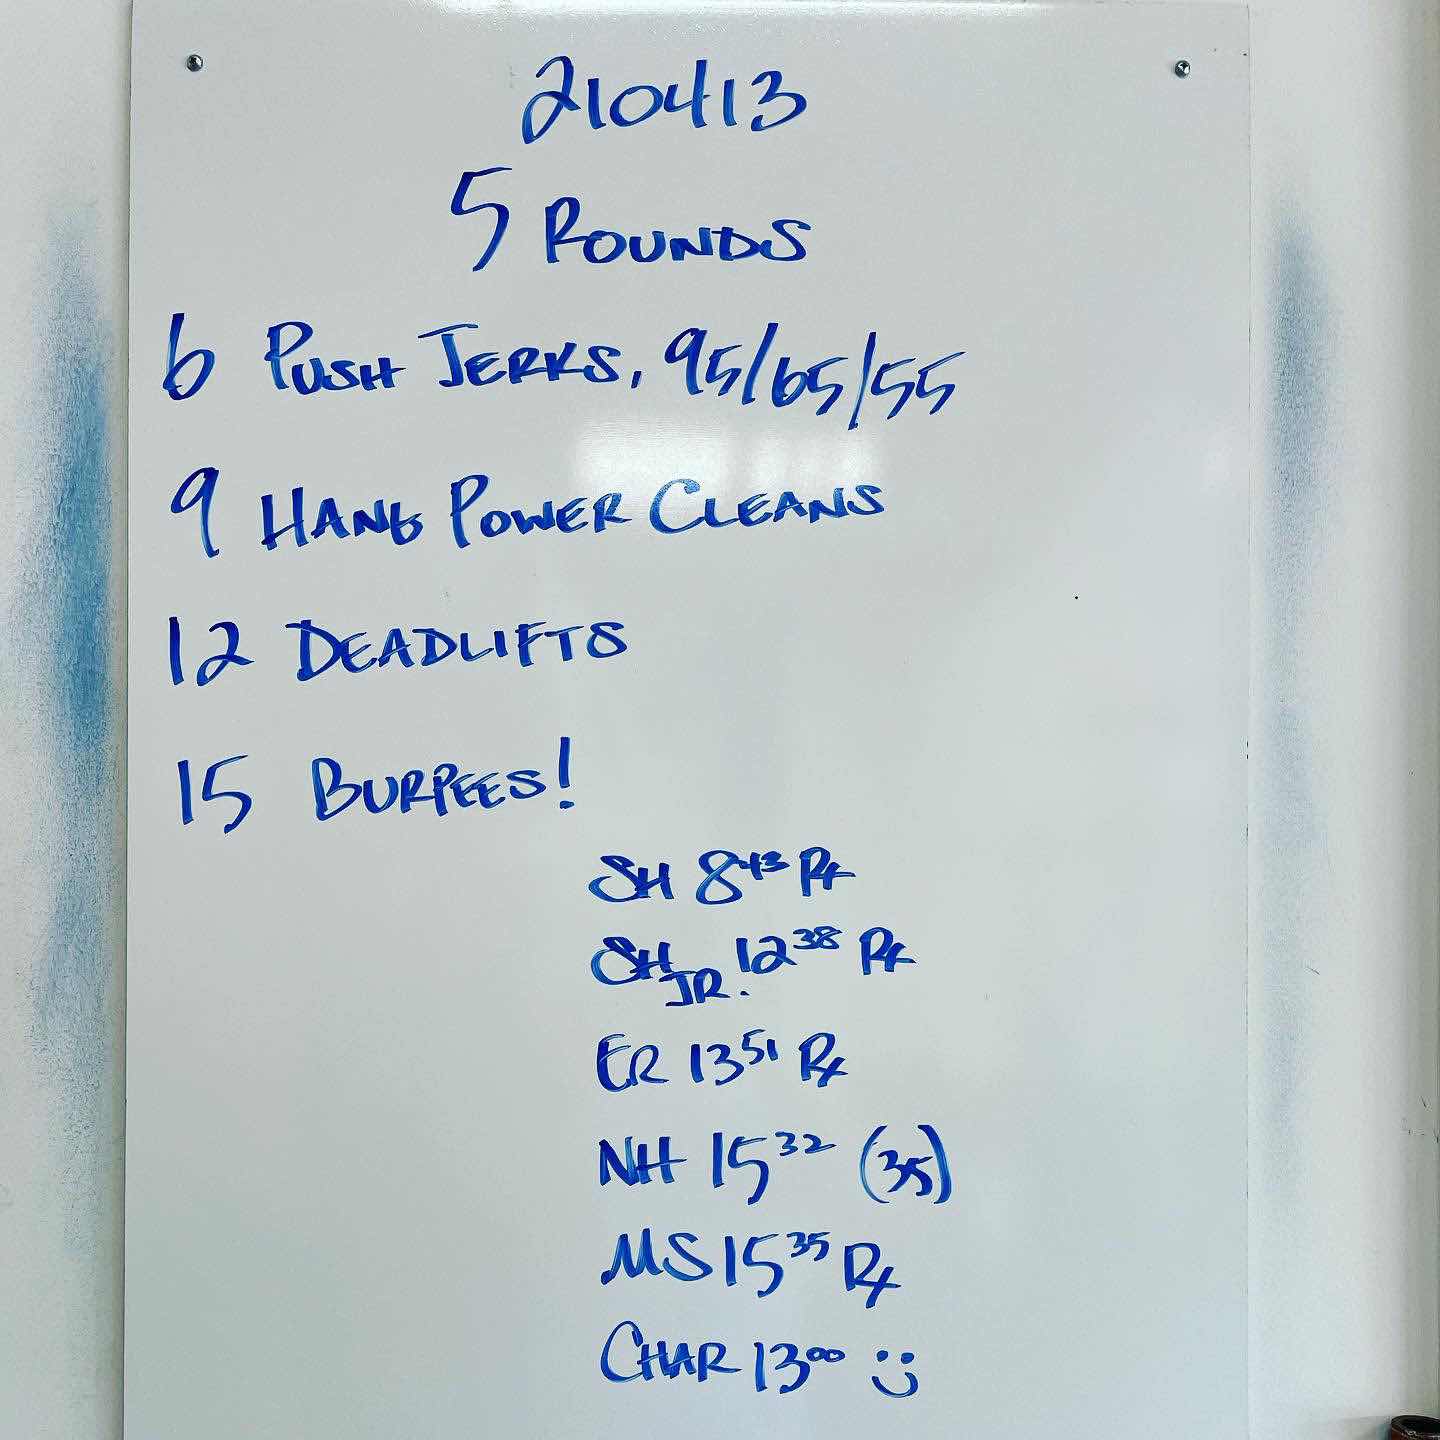 210413
5 ROUNDS
6 PUSH JERKS, 95/65/55
9 HANG POWER CLEANS
12 DEADLIFTS
15 BURPEES!
SH 8 43 Rx
SH JR. 12 38 Rx
ER 13 51 Rx
NH 15 32 (35)
MS 15 35 Rx
CHAR 13 00 :)